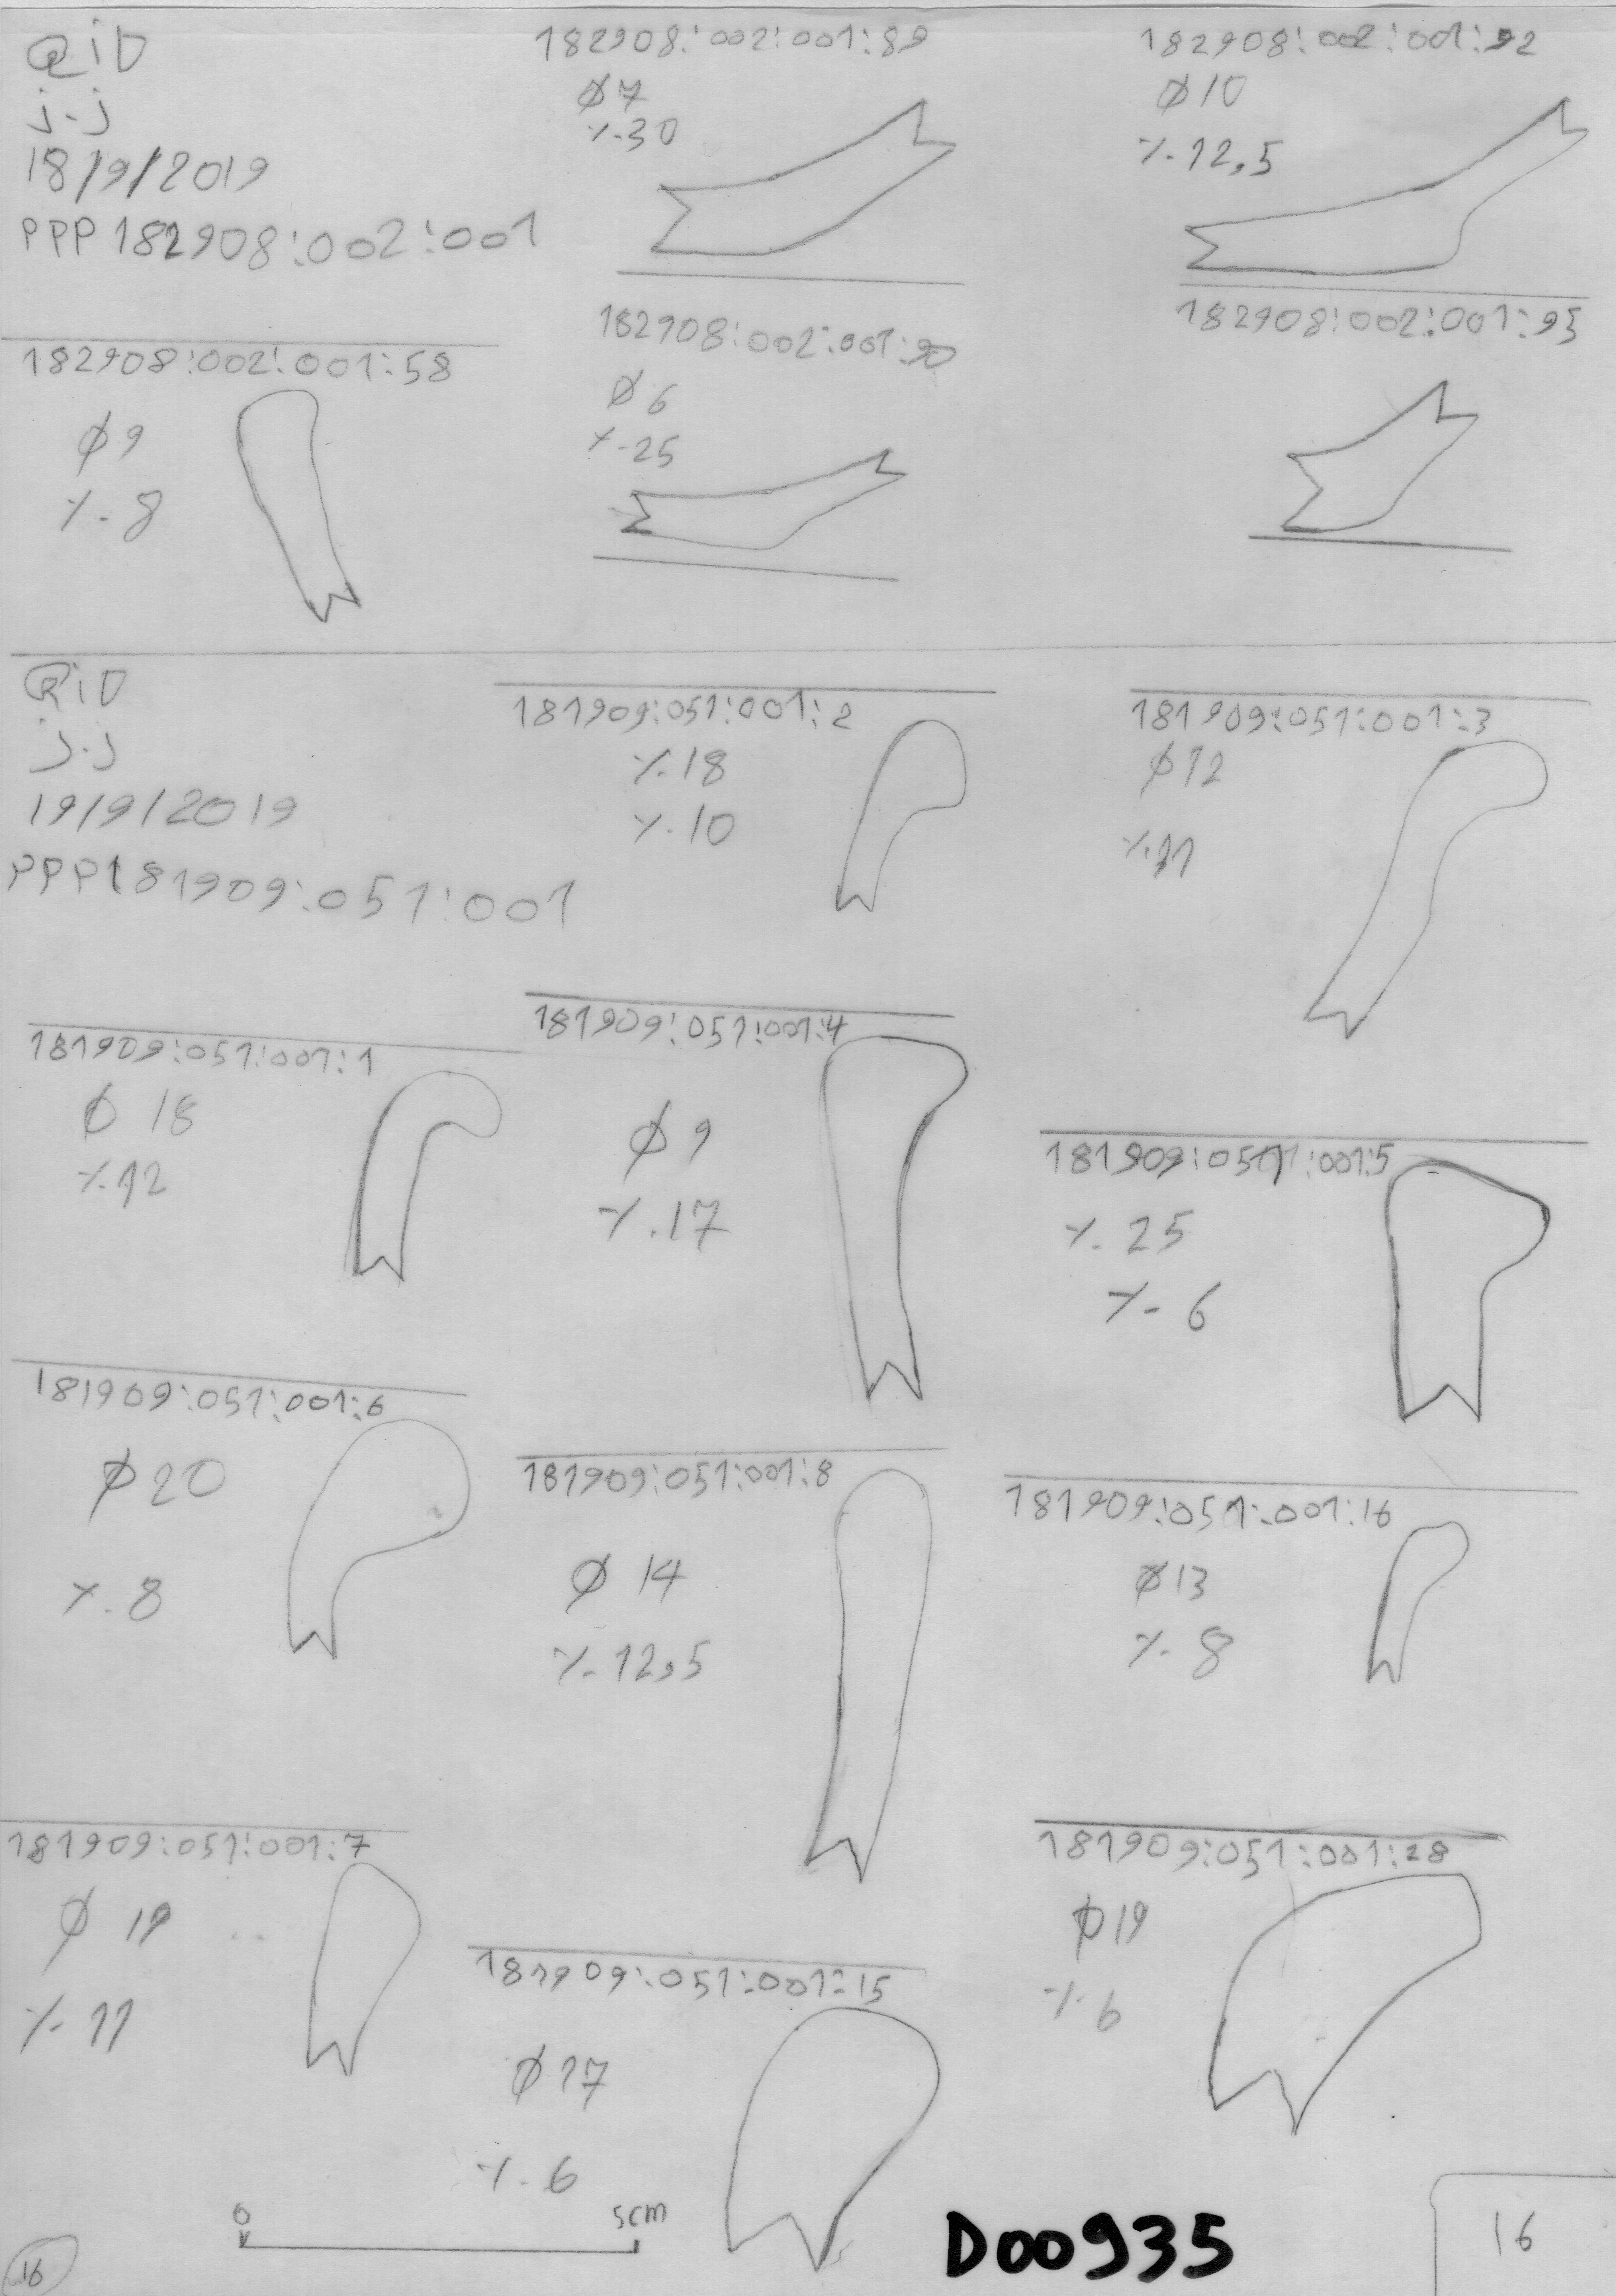 QiD
j.j
18/9/2019
PPP182908:002:001
182908:002:001:58
Ø9
%.8
182908:002:001:89
Ø7
%.30
182908:002:001:90
Ø6
%.25
182908:002:001:92
Ø10
%.12,5
182908:002:001:93
QiD
j.j
19/9/2019
PPP181909:051:001
181909:051:001:2
%.18
%.10
181909:051:001:3
Ø12
%.11
181909:051:001:1
Ø 18
%.12
181909:051:001:4
Ø 9
%.17
181909:051:001:5
%.25
%.6
181909:051:001:6
Ø20
%.8
181909:051:001:8
Ø 14
%.12,5
181909:051:001:16
Ø13
%.8
181909:051:001:7
Ø 19
%.11
181909:051:001:15
Ø 17
%.6
181909:051:001:28
Ø19
%.6
0 5cm
D00935
16
16